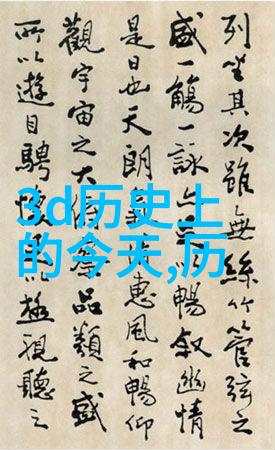 3d历史上
的今天,历
列坐其次雖無絲竹管弦之
盛一觴一詠暢叙幽情
是日也天朗惠風和暢仰
觀宇宙之大品類之盛
所以遊目騁以極視聽之